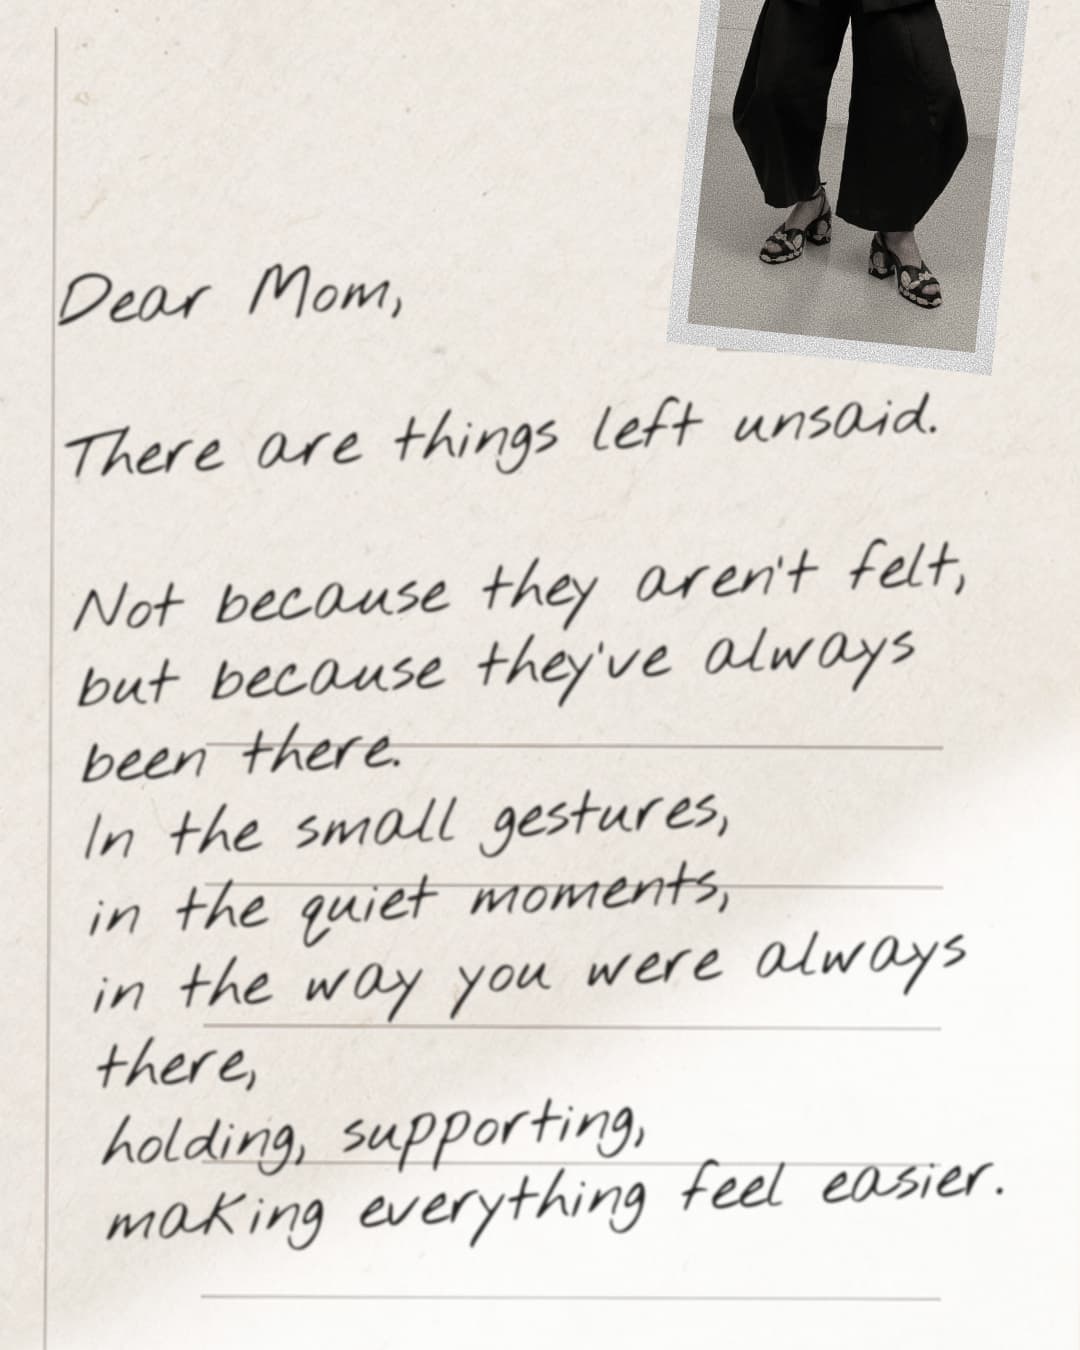 Dear Mom,
There are things left unsaid.
Not because they aren't felt,
but because they've always
been there.
In the small gestures,
in the quiet moments,
in the way you were always
there,
holding, supporting,
making everything feel easier.